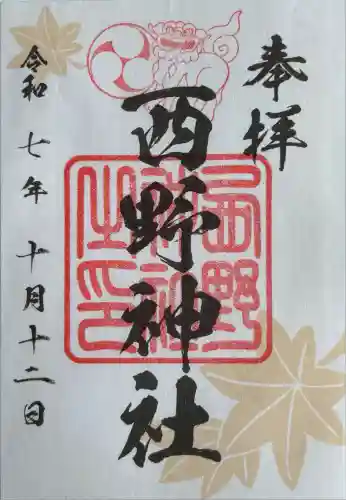 奉拝
西野神社
西野
神社
之印
令和七年十月十二日